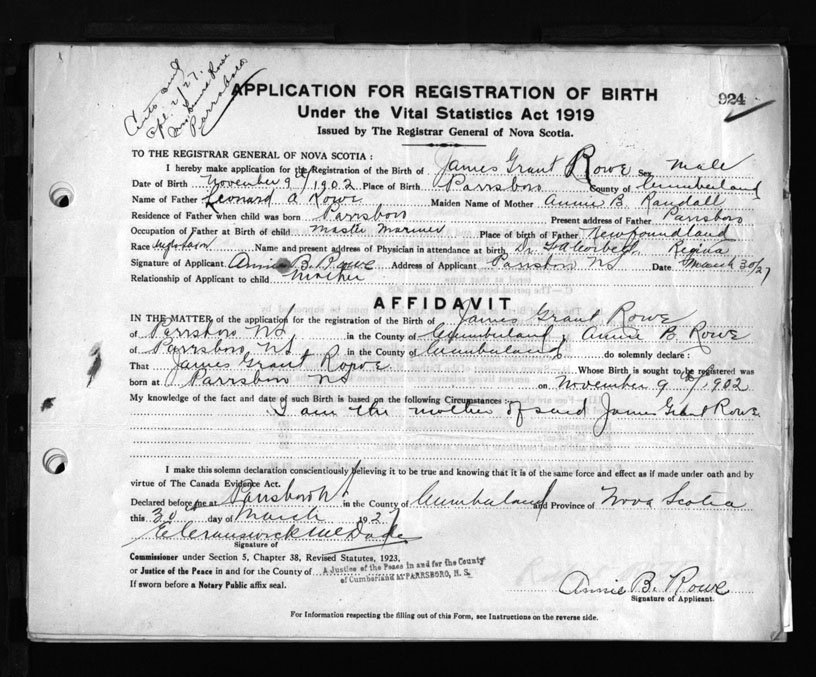 Apl. 2/27.
Parrsboro
APPLICATION FOR REGISTRATION OF BIRTH
924
Under the Vital Statistics Act 1919
Issued by The Registrar General of Nova Scotia.
TO THE REGISTRAR GENERAL OF NOVA SCOTIA :
I hereby make application for the Registration of the Birth of James Grant Rowe Sex Male
Date of Birth November 9th/1902 Place of Birth Parrsboro County of Cumberland
Name of Father Leonard A Rowe Maiden Name of Mother Annie B. Randall
Residence of Father when child was born Parrsboro Present address of Father Parrsboro
Occupation of Father at Birth of child Master Mariner Place of birth of Father Newfoundland
Race Name and present address of Physician in attendance at birth Dr. Regina
Signature of Applicant Annie B. Rowe Address of Applicant Parrsboro NS Date March 30/27
Relationship of Applicant to child Mother
AFFIDAVIT
IN THE MATTER of the application for the registration of the Birth of James Grant Rowe
of Parrsboro NS in the County of Cumberland, Annie B Rowe
of Parrsboro NS in the County of Cumberland do solemnly declare :
That James Grant Rowe Whose Birth is sought to be registered was
born at Parrsboro NS on November 9th/1902
My knowledge of the fact and date of such Birth is based on the following Circumstances :
I am the mother of said James Grant Rowe
I make this solemn declaration conscientiously believing it to be true and knowing that it is of the same force and effect as if made under oath and by
virtue of The Canada Evidence Act.
Declared before me at Parrsboro NS in the County of Cumberland and Province of Nova Scotia
this 30 day of March 1927
Signature of
Commissioner under Section 5, Chapter 38, Revised Statutes, 1923,
or Justice of the Peace in and for the County of A Justice of the Peace in and for the County
of Cumberland at PARRSBORO, N. S.
If sworn before a Notary Public affix seal.
Annie B. Rowe
Signature of Applicant.
For Information respecting the filling out of this Form, see Instructions on the reverse side.